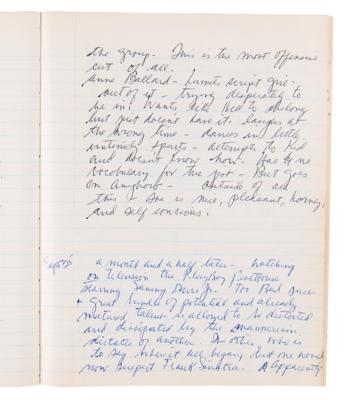 the group - This is the most offensive
cut of all.
Anne Ballard - Lumet's script girl -
out of it - trying desperately to
be in: Wants to belong
but just doesnt have it. laughs at
the wrong time - dances in little
untimely spurts - attempts to kid
and doesnt know how. Has no
vocabulary for the pot - But goes
on anyhow - outside of all
this - She is nice, pleasant, horney,
and self concious.
Sept 25 a month and a half later - watching
on television the PlayBoy Penthouse
starring Sammy Davis Jr. Too Bad such
a great bundle of potential and already
matured talent is allowed to be distorted
and dissipated by the mannerism
dictates of another. Or other, who is
to say where it all began, but one would
now suspect Frank Sinatra. Apparently